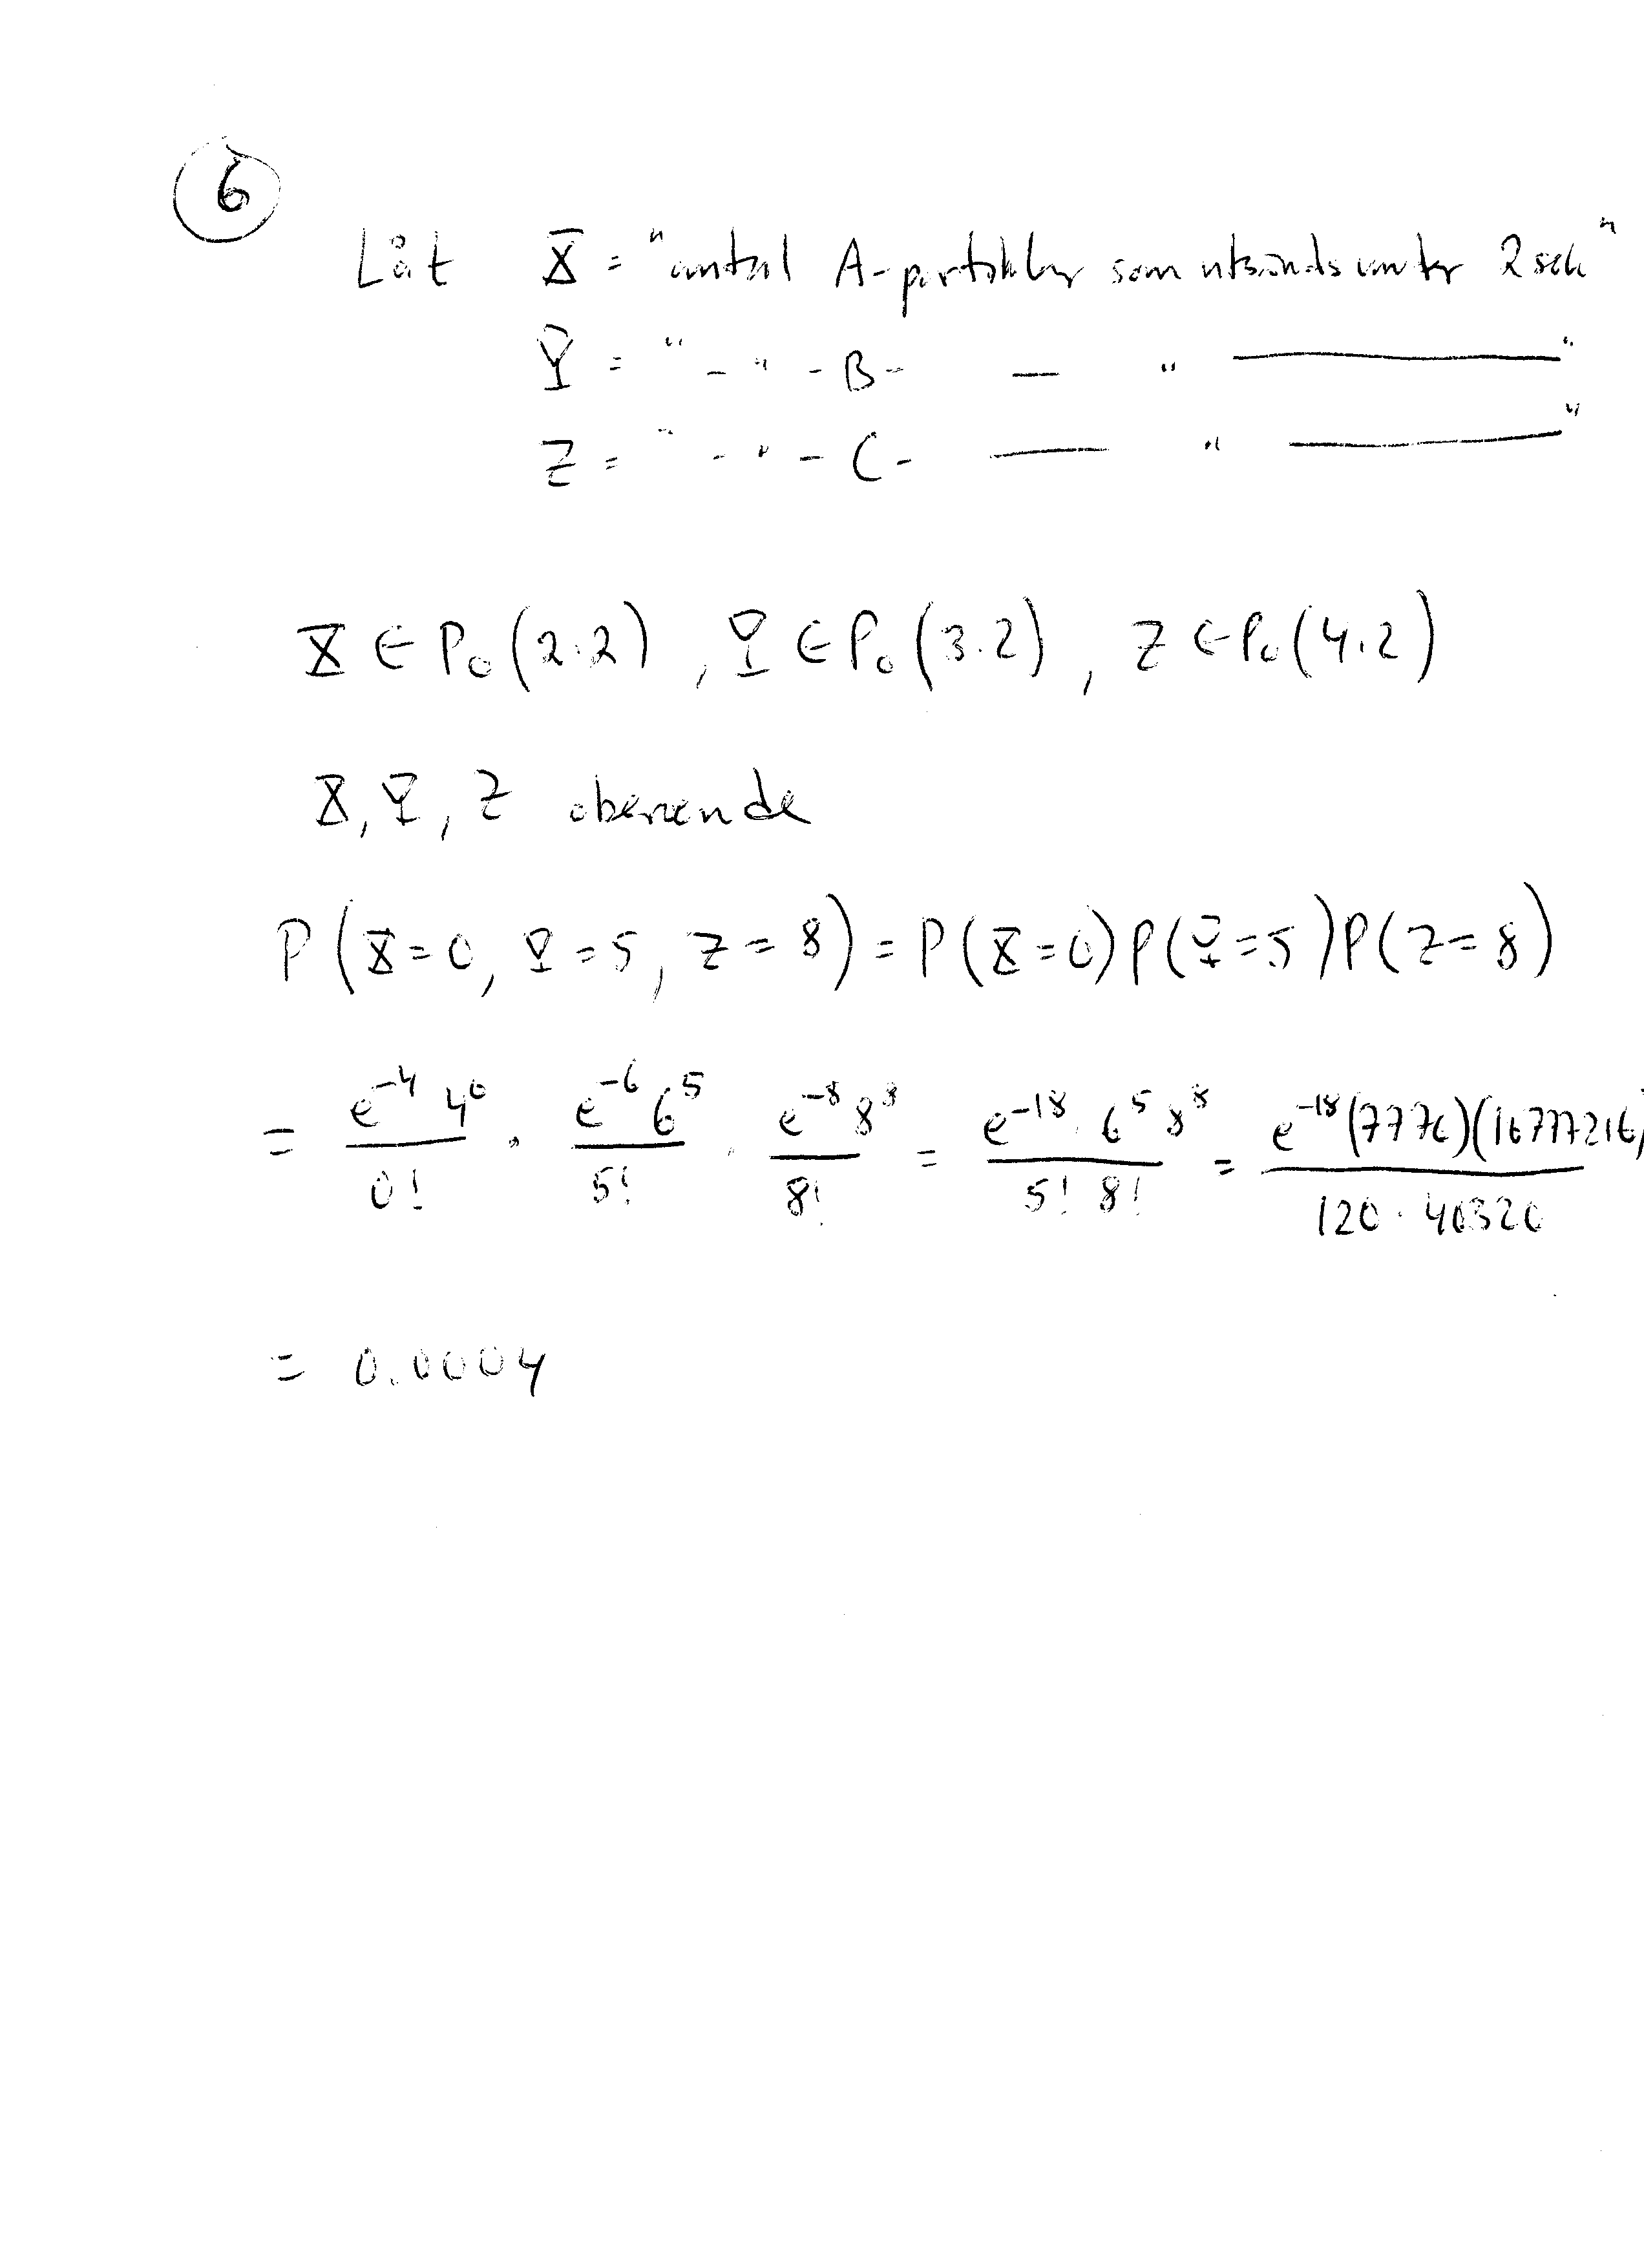 6
Låt X = "antal A-partiklar som utsänds under 2 sek"
Y = " - " - B - — " ——— "
Z = " - " - C - — " ——— "
X ∈ Po(2·2), Y ∈ Po(3·2), Z ∈ Po(4·2)
X, Y, Z oberoende
P(X=0, Y=5, Z=8) = P(X=0)P(Y=5)P(Z=8)
= e^{-4} 4^0 / 0! · e^{-6} 6^5 / 5! · e^{-8} 8^8 / 8! = e^{-18} 6^5 8^8 / 5! 8! = e^{-18}(7776)(16777216) / 120·40320
= 0.0004